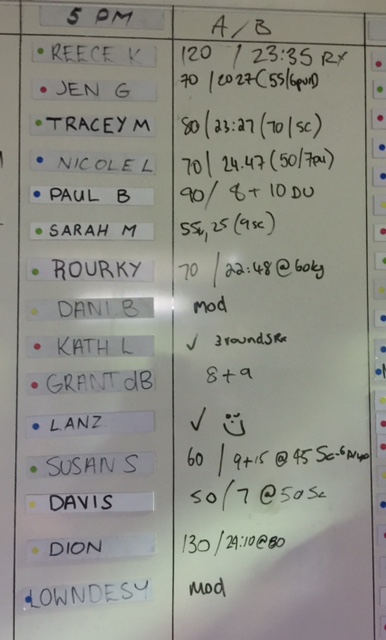 5 PM A/B
REECE K 120 / 23:35 Rx
JEN G 70 / 20:27 (55/6pull)
TRACEY M 80 / 23:27 (70/sc)
NICOLE L 70 / 24.47 (50/7pu)
PAUL B 90 / 8 + 10 DU
SARAH M 25 (9sc)
ROURKY 70 / 22:48 @ 60kg
DANI B mod
KATH L ✓ 3 rounds Rx
GRANT dB 8+9
LANZ ✓
SUSAN S 60 / 9+15 @ 45 Sc-6
DAVIS 50 / 7 @ 50 Sc
DION 130 / 24:10 @ 80
LOWNDESY mod